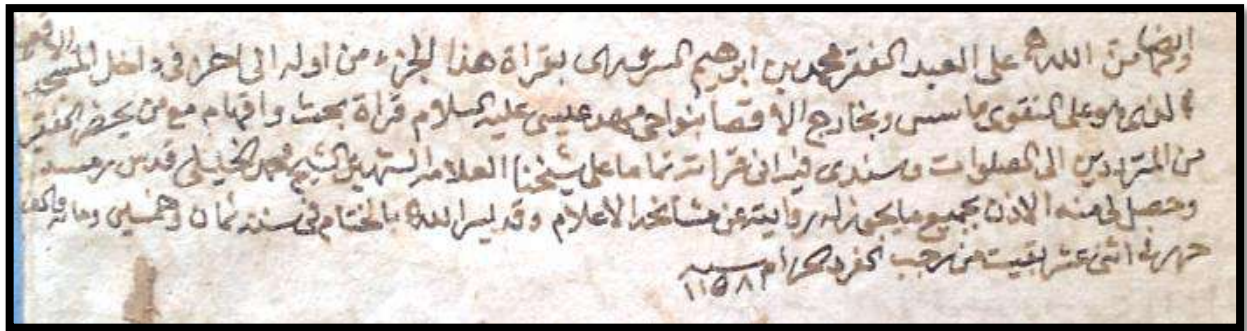 وايضا من الله على العبد الفقير محمد بن ابرهيم بقراة هذا الجزء من اوله الى اخره في داخل المسجد الاقصى
الذي هو على التقوى ماسس وبخارج الاقصا بنواحي مهد عيسى عليه السلام قراة بحث وافهام مع من يحضر الفقير
من المترددين الى الصلوات وسندي فيه اني قراته تماما على شيخنا العلامه الشهير الشيخ محمد الخليلي قدس سره
وحصل لي منه الاذن بجميع ما يجوز له روايته عن مشائخه الاعلام وقد يسر الله بالختام في سنه ثمان وخمسين ومايه والف
اثني عشر بقيت من رجب الفرد الحرام سنه ١١٥٨